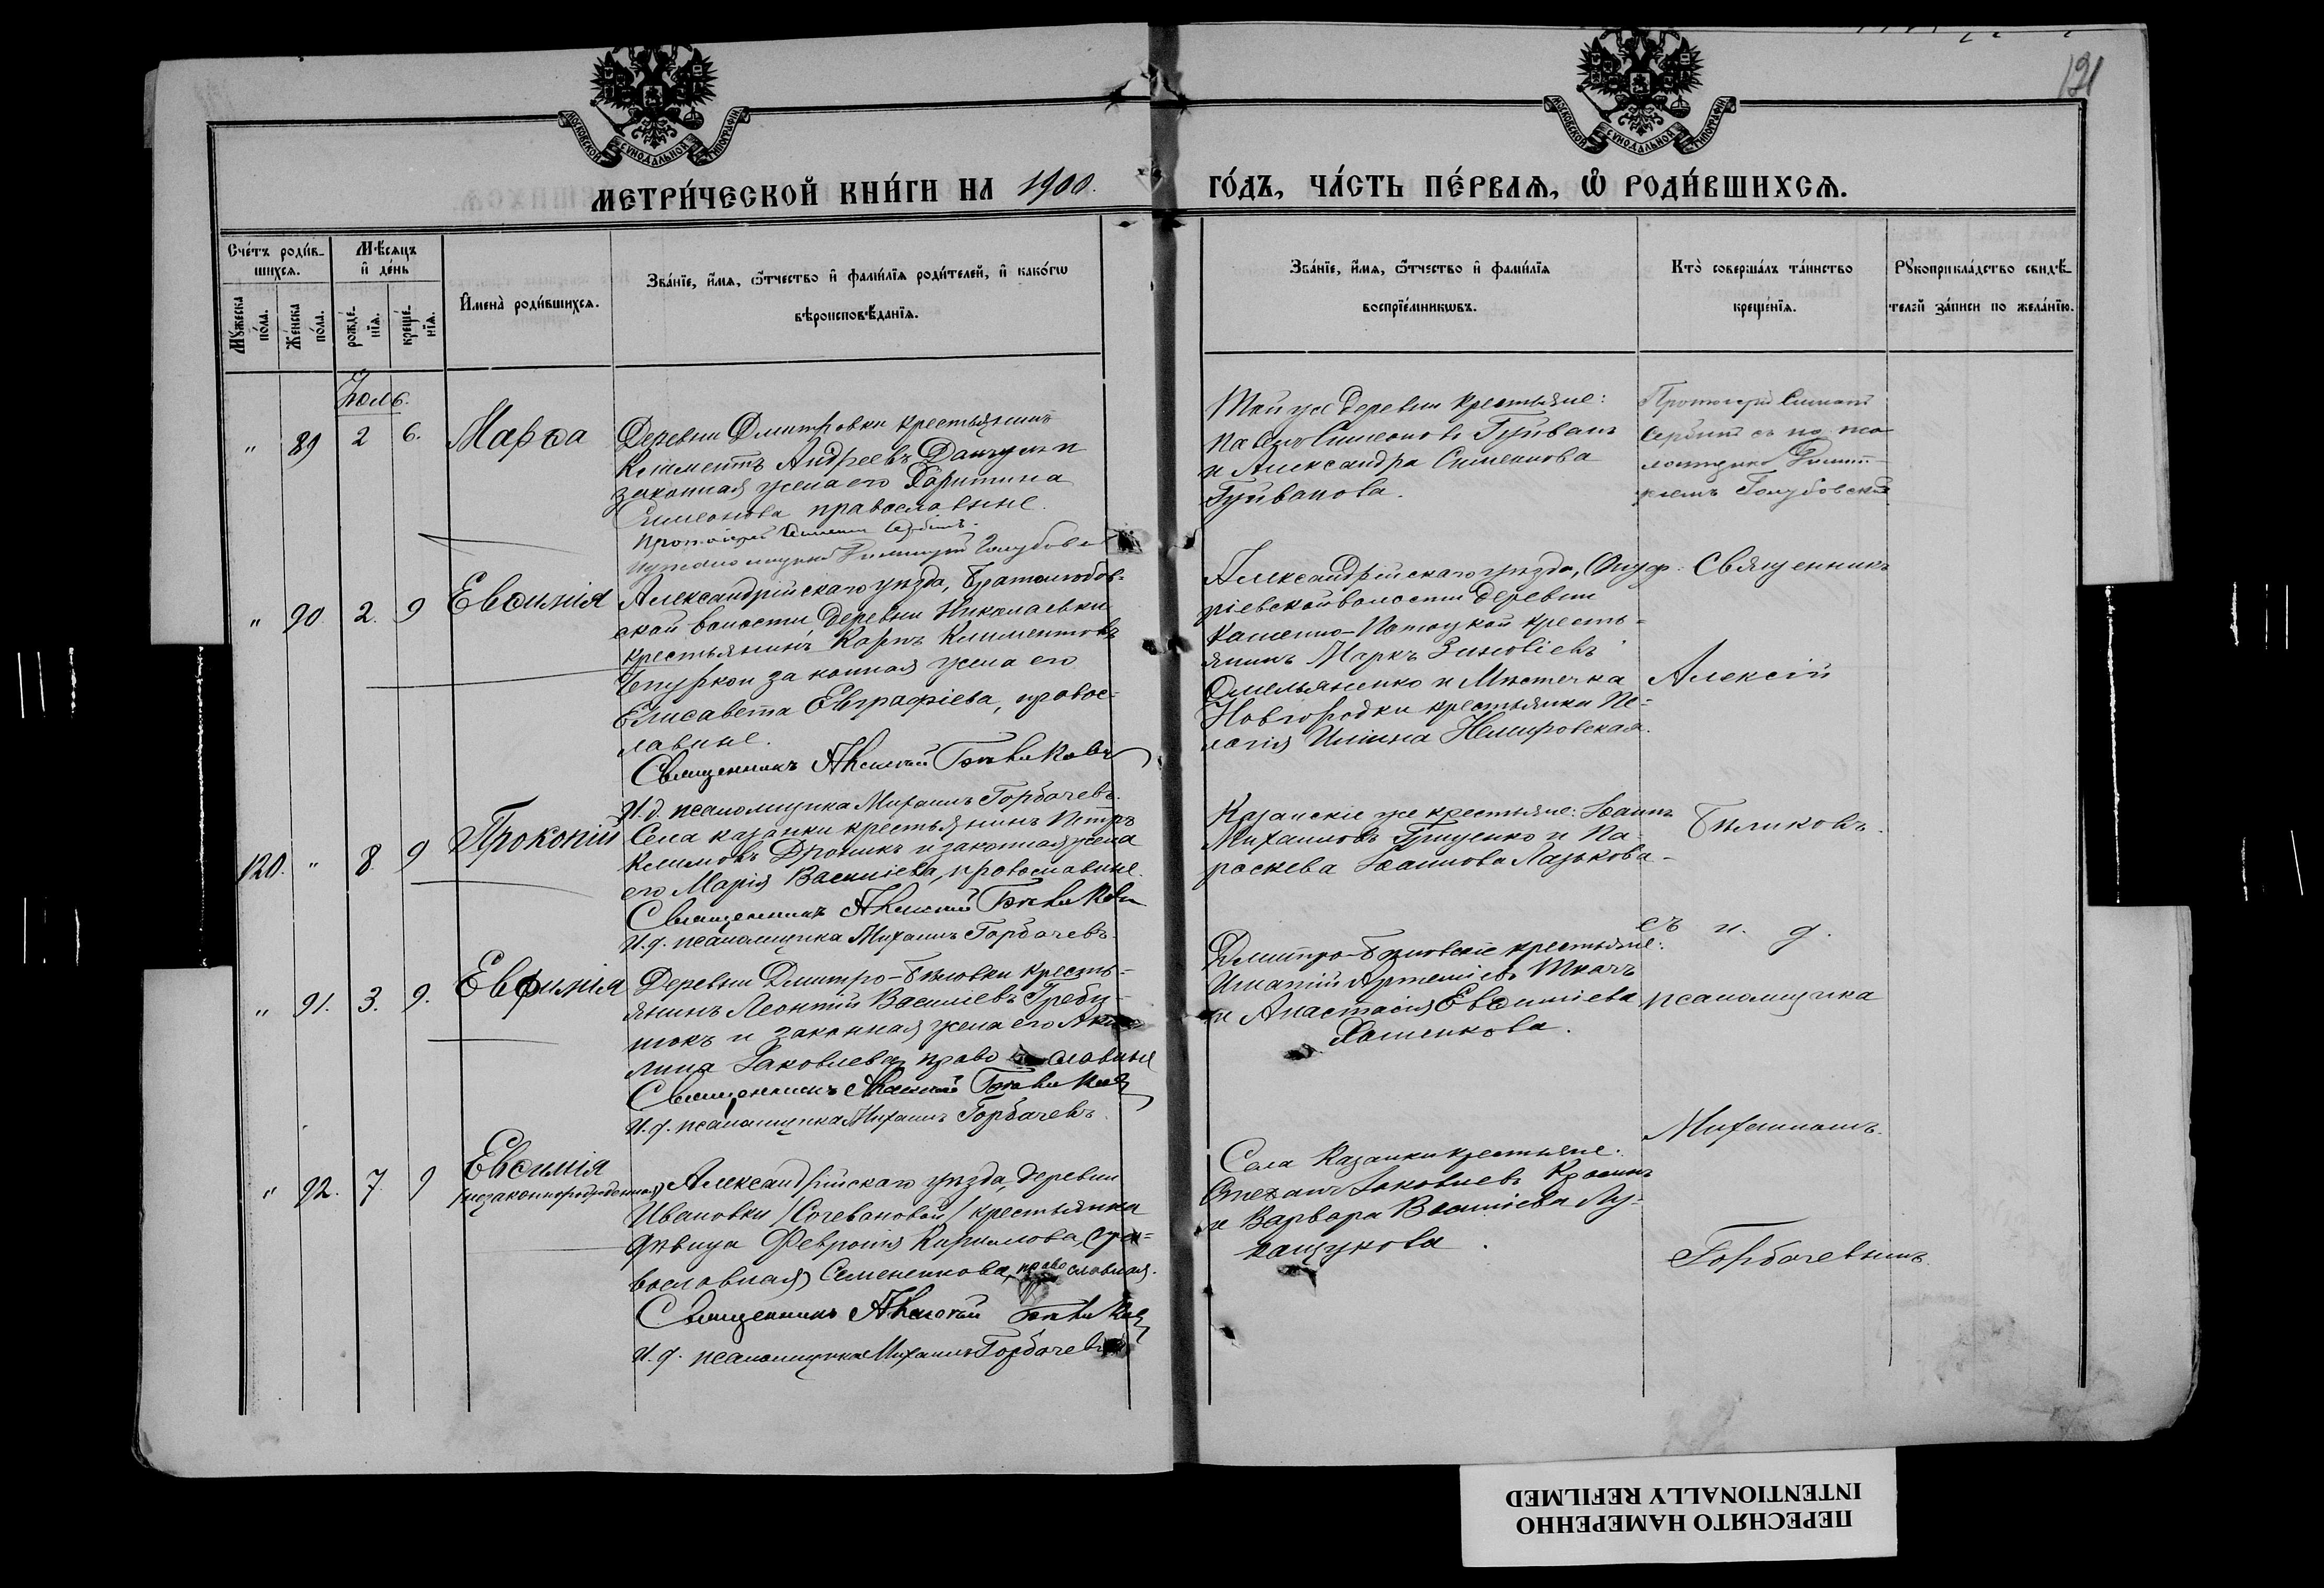 121
МОСКОВСКОЙ СѴНОДАЛЬНОЙ ТИПОГРАФІИ
МОСКОВСКОЙ СѴНОДАЛЬНОЙ ТИПОГРАФІИ
МЕТРИ́ЧЕСКОЙ КНИ́ГИ НА 1900. ГО́ДЪ, ЧА́СТЬ ПЕ́РВАѦ, Ѡ҆ РОДИ́ВШИХСѦ.
Сче́тъ роди́в-
шихсѧ.
Мꙋ́жеска по́ла.
Же́нска по́ла.
Мѣ́сѧцъ
и҆ де́нь
рожде́-нїѧ.
креще́-нїѧ.
И҆мена̀ роди́вшихсѧ.
Зва́нїе, и҆́мѧ, ѻ҆́тчество и҆ фами́лїѧ роди́телей, и҆ како́гѡ
вѣроисповѣ́данїѧ.
Зва́нїе, и҆́мѧ, ѻ҆́тчество и҆ фами́лїѧ
воспрїе́мникѡвъ.
Кто̀ соверша́лъ та́инство
креще́нїѧ.
Рꙋкоприкла́дство свидѣ́-
телей за́писи по жела́нїю.
Іюль.
" 89 2 6. Марѳа
Деревни Дмитровки крестьянинъ
Климентъ Андреевъ и
законная жена его Харитина
Симеонова православные.
Протоіерей Симеонъ
Псаломщикъ Димитрій
Той же деревни крестьяне:
Павелъ Симеоновъ Гуйванъ
и Александра Симеонова
Гуйванова.
Протоіерей Симеонъ
съ пса-
ломщикомъ Димит-
ріемъ Голубовскимъ
" 90. 2. 9 Евѳимія
Александрійскаго уѣзда, Братолюбов-
ской волости деревни Николаевки
крестьянинъ Карпъ Климентовъ
законная жена его
Елисавета Евграфіева, правос-
лавные.
Священникъ Алексій Бѣликовъ
И.д. псаломщика Михаилъ Горбачевъ.
Александрійскаго уѣзда, Онуф-
ріевской волости деревни
Каменно-Потоцкой кресть-
янинъ Маркъ Зиновіевъ
Омельяненко и Мѣстечка
Новгородки крестьянка Пе-
лагія Ильина Немировская.
Священникъ
Алексій
Бѣликовъ
съ и. д.
псаломщика
Михаиломъ
Горбачевымъ.
120. " 8. 9 Прокопій
Села Казанки крестьянинъ Петръ
Климовъ Дроникъ и законная жена
его Марія Василіева, православные.
Священникъ Алексій Бѣликовъ
И.д. псаломщика Михаилъ Горбачевъ.
Казанскіе же крестьяне: Іоаннъ
Михаиловъ Гриценко и Па-
раскева Іоаннова Лазькова
" 91. 3. 9. Евфимія
Деревни Дмитро-Бѣловки кресть-
янинъ Леонтій Василіевъ Гребе-
нюкъ и законная жена его Аки-
лина Іаковлева православные
Священникъ Алексій Бѣликовъ
И.д. псаломщика Михаилъ Горбачевъ.
Дмитро-Бѣловскіе крестьяне:
Игнатій Артеміевъ Ткачъ
и Анастасія Евѳиміева
Хоменкова.
" 92. 7. 9 Евѳимія
(незаконнорожденная)
Александрійскаго уѣзда, деревни
Ивановки /Сочевановой/ крестьянка
дѣвица Февронія Кириллова, (пра-
вославная) Семененкова, православная.
Священникъ Алексій Бѣликовъ
И.д. псаломщика Михаилъ Горбачевъ
Села Казанки крестьяне:
Стефанъ Іаковлевъ
и Варвара Василіева Лу-
кащукова.
ПЕРЕСНЯТО НАМЕРЕННО
INTENTIONALLY REFILMED